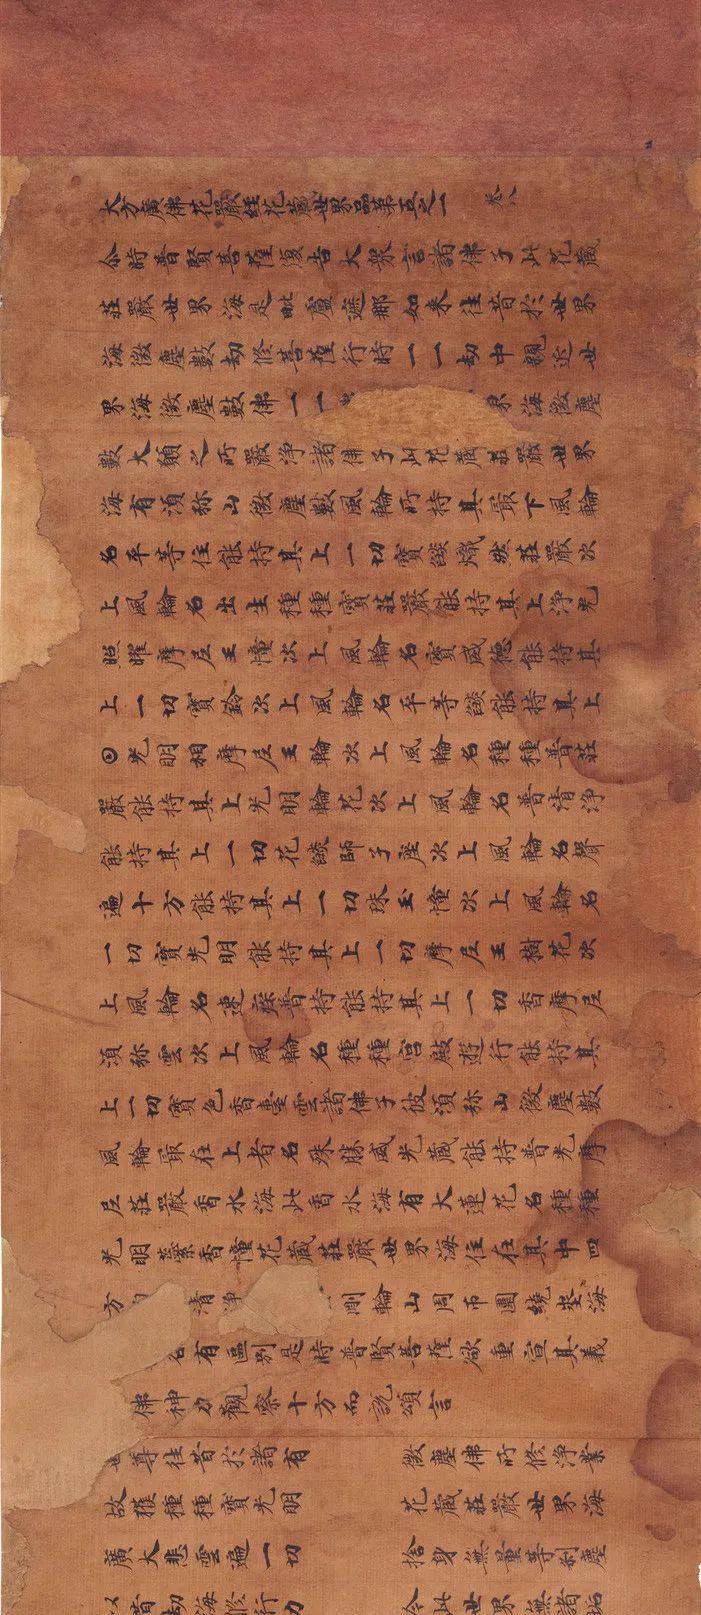 大方廣佛花嚴經花藏世界品第五之一 卷八
尒時普賢菩薩復告大衆言諸佛子此花藏
莊嚴世界海是毗盧遮那如来往昔於世界
海微塵數劫修菩薩行時一一劫中親近世
界海微塵數佛一一 界海微塵
數大願之所嚴淨諸佛子此花藏莊嚴世界
海有須弥山微塵數風輪所持其最下風輪
名平等住能持其上一切寶燄熾然莊嚴次
上風輪名出生種種寶莊嚴能持其上淨光
照曜摩尼王憧次上風輪名寶威德能持其
上一切寶鈴次上風輪名平等燄能持其上
𡆠光明相摩尼王輪次上風輪名種種普莊
嚴能持其上光明輪花次上風輪名普清淨
能持其上一切花燄師子座次上風輪名聲
遍十方能持其上一切珠王憧次上風輪名
一切寶光明能持其上一切摩尼王樹花次
上風輪名速疾普持能持其上一切香摩尼
須弥雲次上風輪名種種宮殿遊行能持其
上一切寶色香臺雲諸佛子彼須弥山微塵數
風輪最在上者名殊勝威光藏能持普光摩
尼莊嚴香水海此香水海有大蓮花名種種
光明蘂香憧花藏莊嚴世界海住在其中四
方 清淨 剛輪山周帀圍繞埊海
名有區別是時普賢菩薩欲重宣其義
佛神力觀察十方而說頌言
世尊往昔於諸有 微塵佛所修淨業
故獲種種寶光明 花藏莊嚴世界海
廣大悲雲遍一切 捨身無量等刹塵
以昔劫海修行力 今此世界無諸垢